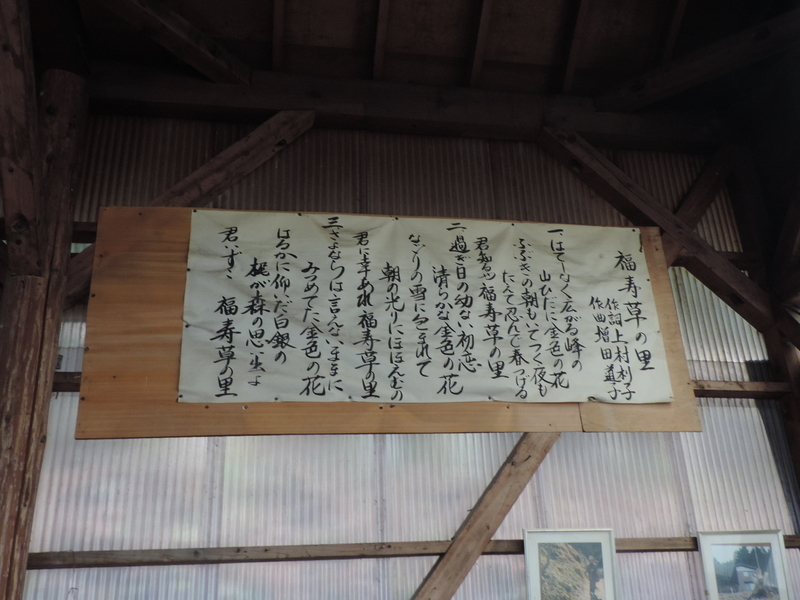 福寿草の里
作詞 上村利子
作曲 増田道子
一、はてしなく広がる峰の
山ひだに金色の花
ふぶきの朝もいてつく夜も
たえて忍んで春つげる
君知るや福寿草の里
二、過ぎし日の幼ない初恋
清らかな金色の花
なごりの雪に包まれて
朝の光りにほほえむの
君に幸あれ福寿草の里
三、さよならは言えないままに
みつめてた金色の花
はるかに仰いだ白銀の
梶が森の思い出よ
君いずこ 福寿草の里